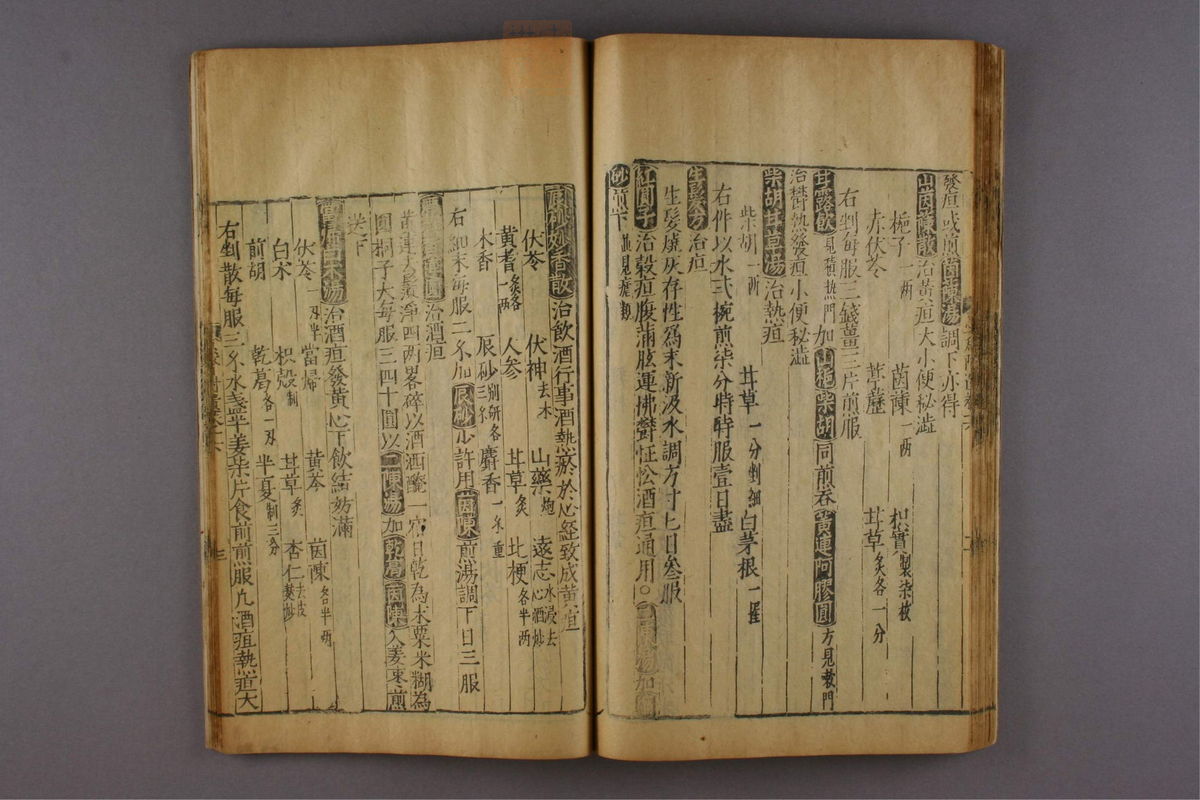 發疸或煎茵陳湯調下亦得
山茵陳散治黃疸大小便秘澁
梔子一兩 茵陳一兩 枳實製柒枚
赤伏苓 葶藶 甘草炙各一分
右剉每服三錢薑三片煎服
甘露飲見積热門加山梔柴胡同煎吞黃連阿膠圓方見粇門
治欎热發疸小便秘澁
柴胡甘草湯治熱疸
柴胡一两 甘草一分剉細 白茅根一握
右件以水弍椀煎柒分時時服壹日盡
生髮方治疸
生髮燒灰存性爲末新汲水調方寸匕日叁服
紅圓子治榖疸腹滿胘運怫欝怔忪酒疸通用○二陳湯加
砂煎下並見瘧類
辰砂妙香散治飲酒行事酒熱瘀於心經致成黃疸
伏苓 伏神去木 山藥炮 遠志水浸去心酒炒
黃耆炙各一两 人参 甘草炙 桔梗各半两
木香 辰砂別研各三分 麝香一分重
右細末每服二分加辰砂少許用茵陳煎湯調下日三服
治酒疸
黃連大鬚淨四两畧碎以酒洒醃一宿日乾為末粟米糊為
圓梧子大每服三四十圓以二陳湯加乾葛茵陳入姜棗煎
送下
當歸白术湯治酒疸發黃心下飲結妨滿
伏苓一刄半 當歸 黃芩 茵陳各半两
白术 枳殻制 甘草炙 杏仁去皮麩炒
前胡 乾葛各一刄 半夏制三分
右剉散每服三分水盞半姜柒片食前煎服凢酒疸熱道大